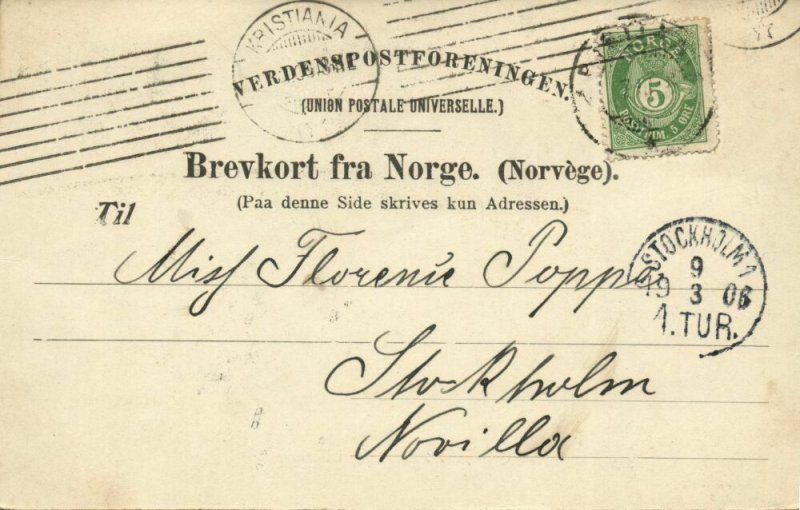 KRISTIANIA
VERDENSPOSTFORENINGEN.
(UNION POSTALE UNIVERSELLE.)
NORGE
5
POSTFRIM 5 ØRE
Brevkort fra Norge. (Norvège).
(Paa denne Side skrives kun Adressen.)
Til
Miss Florenie Popper
STOCKHOLM 1
9
19 3 06
1.TUR.
Stockholm
Novilla